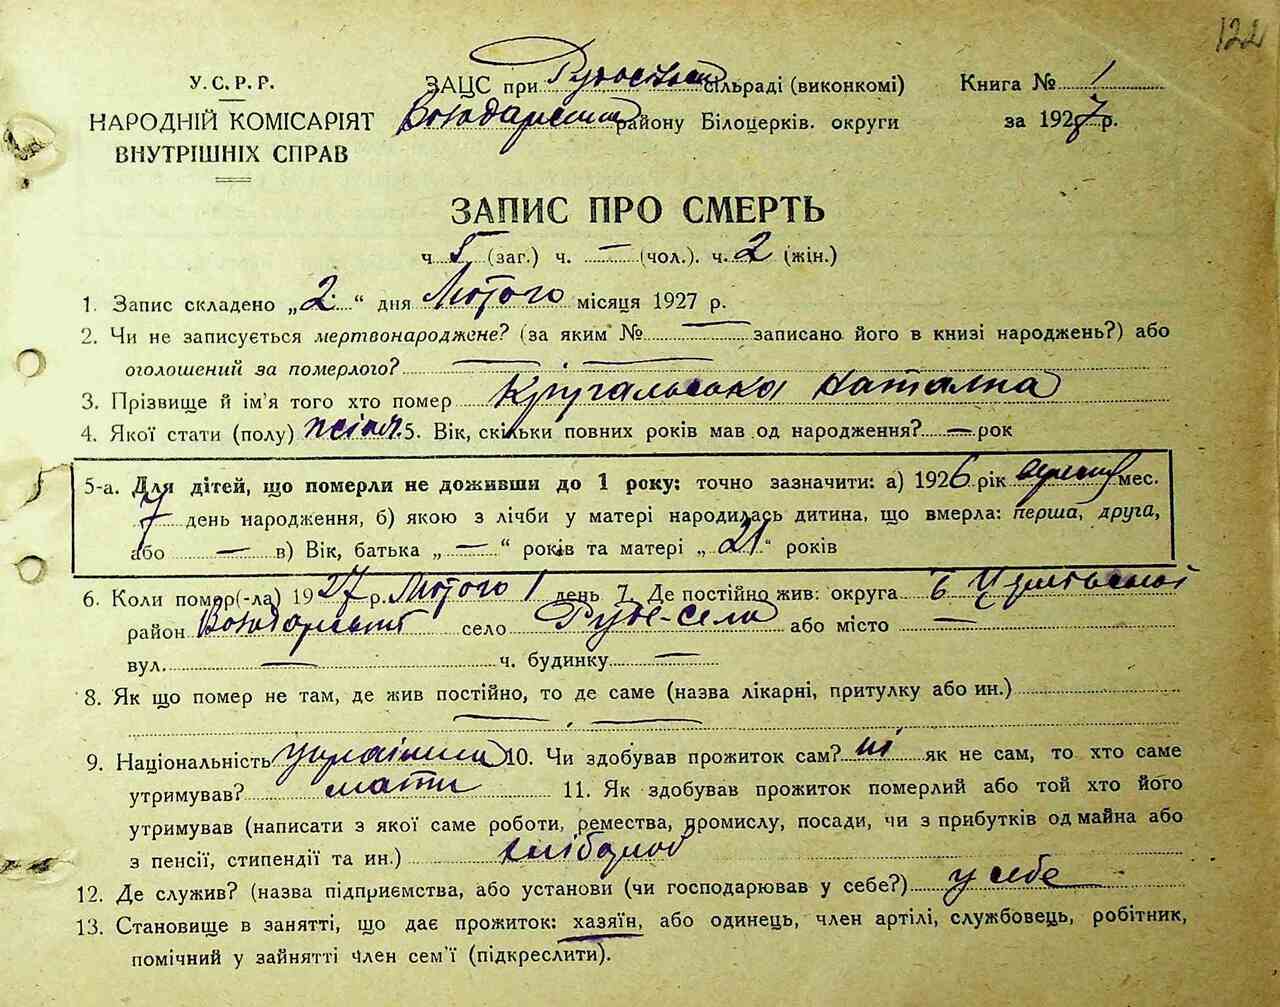 122
У.С.Р.Р.
НАРОДНІЙ КОМІСАРІЯТ
ВНУТРІШНІХ СПРАВ
ЗАЦС при сільраді (виконкомі)
району Білоцерків. округи
Книга № 1
за 1927 р.
ЗАПИС ПРО СМЕРТЬ
ч 5 (заг.) ч. — (чол.). ч. 2 (жін.)
1. Запис складено „2“ дня Лютого місяця 1927 р.
2. Чи не записується мертвонароджене? (за яким № — записано його в книзі народжень?) або
оголошений за померлого? —
3. Прізвище й ім'я того хто помер Кругальська Наталка
4. Якої стати (полу) 5. Вік, скільки повних років мав од народження? — рок
5-а. Для дітей, що померли не доживши до 1 року: точно зазначити: а) 1926 рік мес.
7 день народження, б) якою з лічби у матері народилась дитина, що вмерла: перша, друга,
або — в) Вік, батька „—“ років та матері „21“ років
6. Коли помер(-ла) 1927 р. Лютого 1 день 7. Де постійно жив: округа
район село Руде-село або місто —
вул. — ч. будинку —
8. Як що помер не там, де жив постійно, то де саме (назва лікарні, притулку або ин.)
9. Національність українка 10. Чи здобував прожиток сам? ні як не сам, то хто саме
утримував? мати 11. Як здобував прожиток померлий або той хто його
утримував (написати з якої саме роботи, ремества, промислу, посади, чи з прибутків од майна або
з пенсії, стипендії та ин.) хлібороб
12. Де служив? (назва підприємства, або установи (чи господарював у себе?) у себе
13. Становище в занятті, що дає прожиток: хазяїн, або одинець, член артілі, службовець, робітник,
помічний у зайнятті член сем'ї (підкреслити).